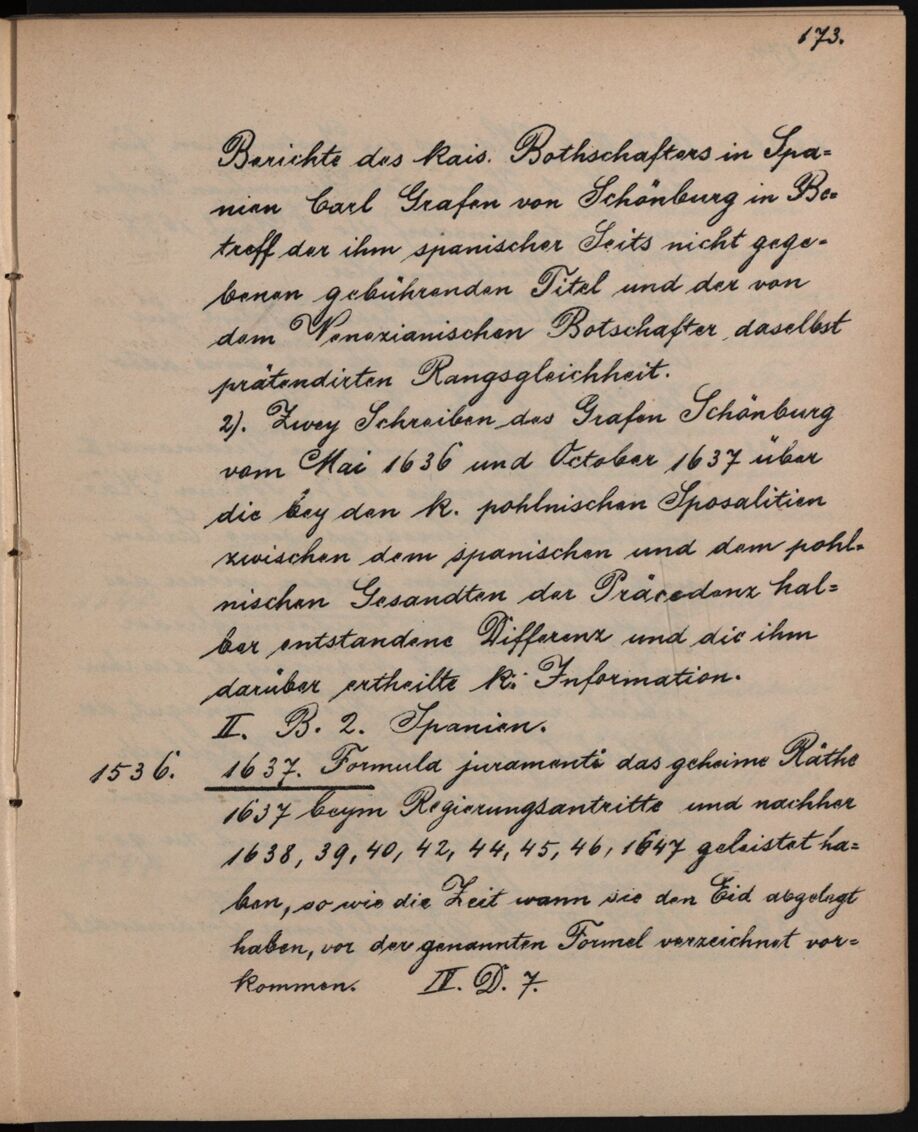 173.
Berichte des kais. Bothschafters in Spa=
nien Carl Grafen von Schönburg in Be=
treff der ihm spanischer Seits nicht gege=
benen gebührenden Titel und der von
dem Venezianischen Botschafter daselbst
prätendirten Rangsgleichheit.
2). Zwey Schreiben des Grafen Schönburg
vom Mai 1636 und October 1637 über
die bey den k. pohlnischen Sposalitien
zwischen dem spanischen und dem pohl=
nischen Gesandten der Präcedenz hal=
ber entstandene Differenz und die ihm
darüber ertheilte k. Information.
II. B. 2. Spanien.
1536. 1637. Formula juramenti das geheime Räthe
1637 beym Regierungsantritte und nachher
1638, 39, 40, 42, 44, 45, 46, 1647 geleistet ha=
ben, so wie die Zeit wann sie den Eid abgelegt
haben, vor der genannten Formel verzeichnet vor=
kommen. IV. D. 7.